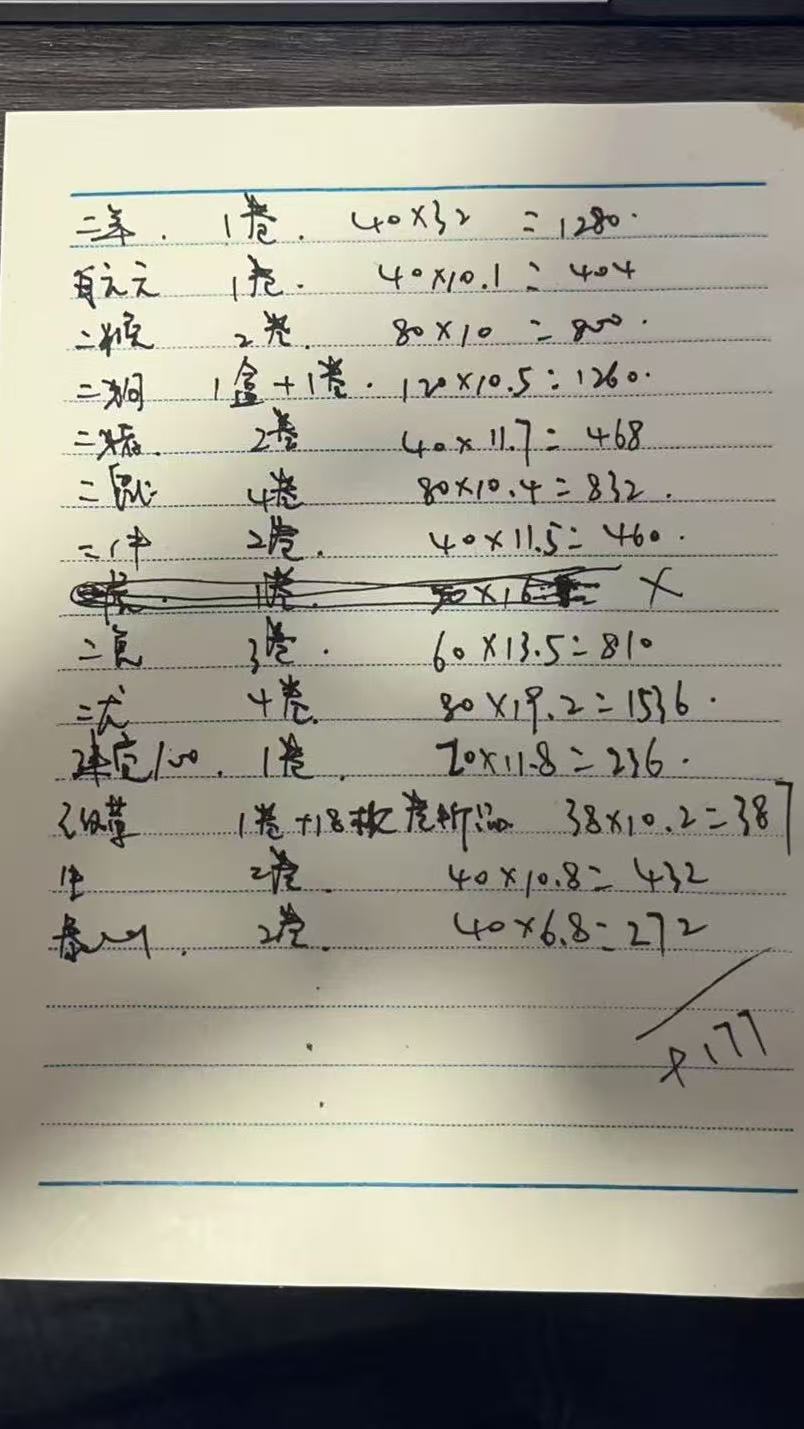 二羊. 1卷. 40×32 = 1280.
百元元 1卷. 40×10.1 = 404
二猴 2卷. 80×10 = 800.
二狗 1盒+1卷. 120×10.5 = 1260.
二猪. 2卷 40×11.7 = 468
二鼠 4卷 80×10.4 = 832.
二牛 2卷. 40×11.5 = 460.
虎. 1卷. ×
二兔 3卷. 60×13.5 = 810
二龙 4卷. 80×19.2 = 1536.
航空100. 1卷. 20×11.8 = 236.
1卷+18枚 38×10.2 = 387
2卷. 40×10.8 = 432
泰山. 2卷. 40×6.8 = 272
9177